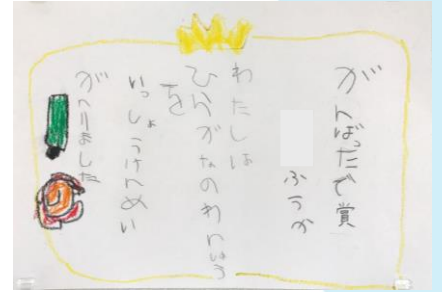 がんばったで賞
ふうか
わたしは
ひらがなのれんしゅう
を
いっしょうけんめい
がんりました